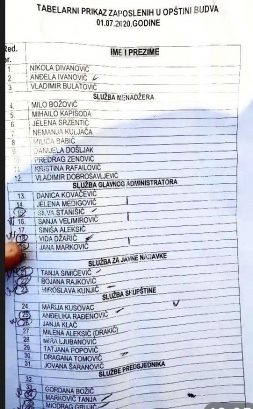 TABELARNI PRIKAZ ZAPOSLENIH U OPŠTINI BUDVA
01.07.2020.GODINE
Red. br. IME I PREZIME
1 NIKOLA DIVANOVIĆ
2 ANĐELA IVANOVIĆ
3 VLADIMIR BULATOVIĆ
SLUŽBA MENADŽERA
4. MILO BOŽOVIĆ
5. MIHAILO KAPISODA
6. JELENA SRZENTIĆ
7. NEMANJA KULJAČA
8. MILICA BABIĆ
DANIJELA DOŠLJAK
PREDRAG ZENOVIĆ
KRISTINA RAFAILOVIĆ
12. VLADIMIR DOBROSAVLJEVIĆ
SLUŽBA GLAVNOG ADMINISTRATORA
13. DANICA KOVAČEVIĆ
14. JELENA MEDIGOVIĆ
15. SILVA STANIŠIĆ
16. SANJA VELIMIROVIĆ
17. SINIŠA ALEKSIĆ
VIDA DŽARIĆ
JANA MARKOVIĆ
SLUŽBA ZA JAVNE NABAVKE
TANJA SIMIĆEVIĆ
BOJANA RAJKOVIĆ
MIROSLAVA KUNJIĆ
SLUŽBA SKUPŠTINE
24. MARIJA KUSOVAC
25. ANĐELIKA RAĐENOVIĆ
26. JANJA KLAČ
27. MILENA ALEKSIĆ (DRAKIĆ)
28. LJUBANOVIĆ
29. TATJANA POPOVIĆ
30. DRAGANA TOMOVIĆ
31. JOVANA ŠARANOVIĆ
SLUŽBE PREDSJEDNIKA
32
GORDANA BOŽIĆ
MARKOVIĆ TANJA
MIODRAG GRUJIĆ